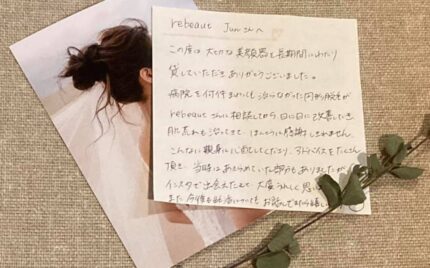 rebeaut Junさんへ
この度は 大切な 美顔器を長期間にわたり
貸していただき ありがとうございました。
病院を何件まわっても治らなかった円形脱毛が
rebeaut さんに相談してから 日に日に改善していき
肌荒れも治ってきて、ほんとうに感謝しきれません。
こんなに親身に心配してくださり、アドバイスをたくさん
頂き、当時はあきらめていた部分もありましたが
インスタで出会えたことで 大変うれしく思い
また 今後も